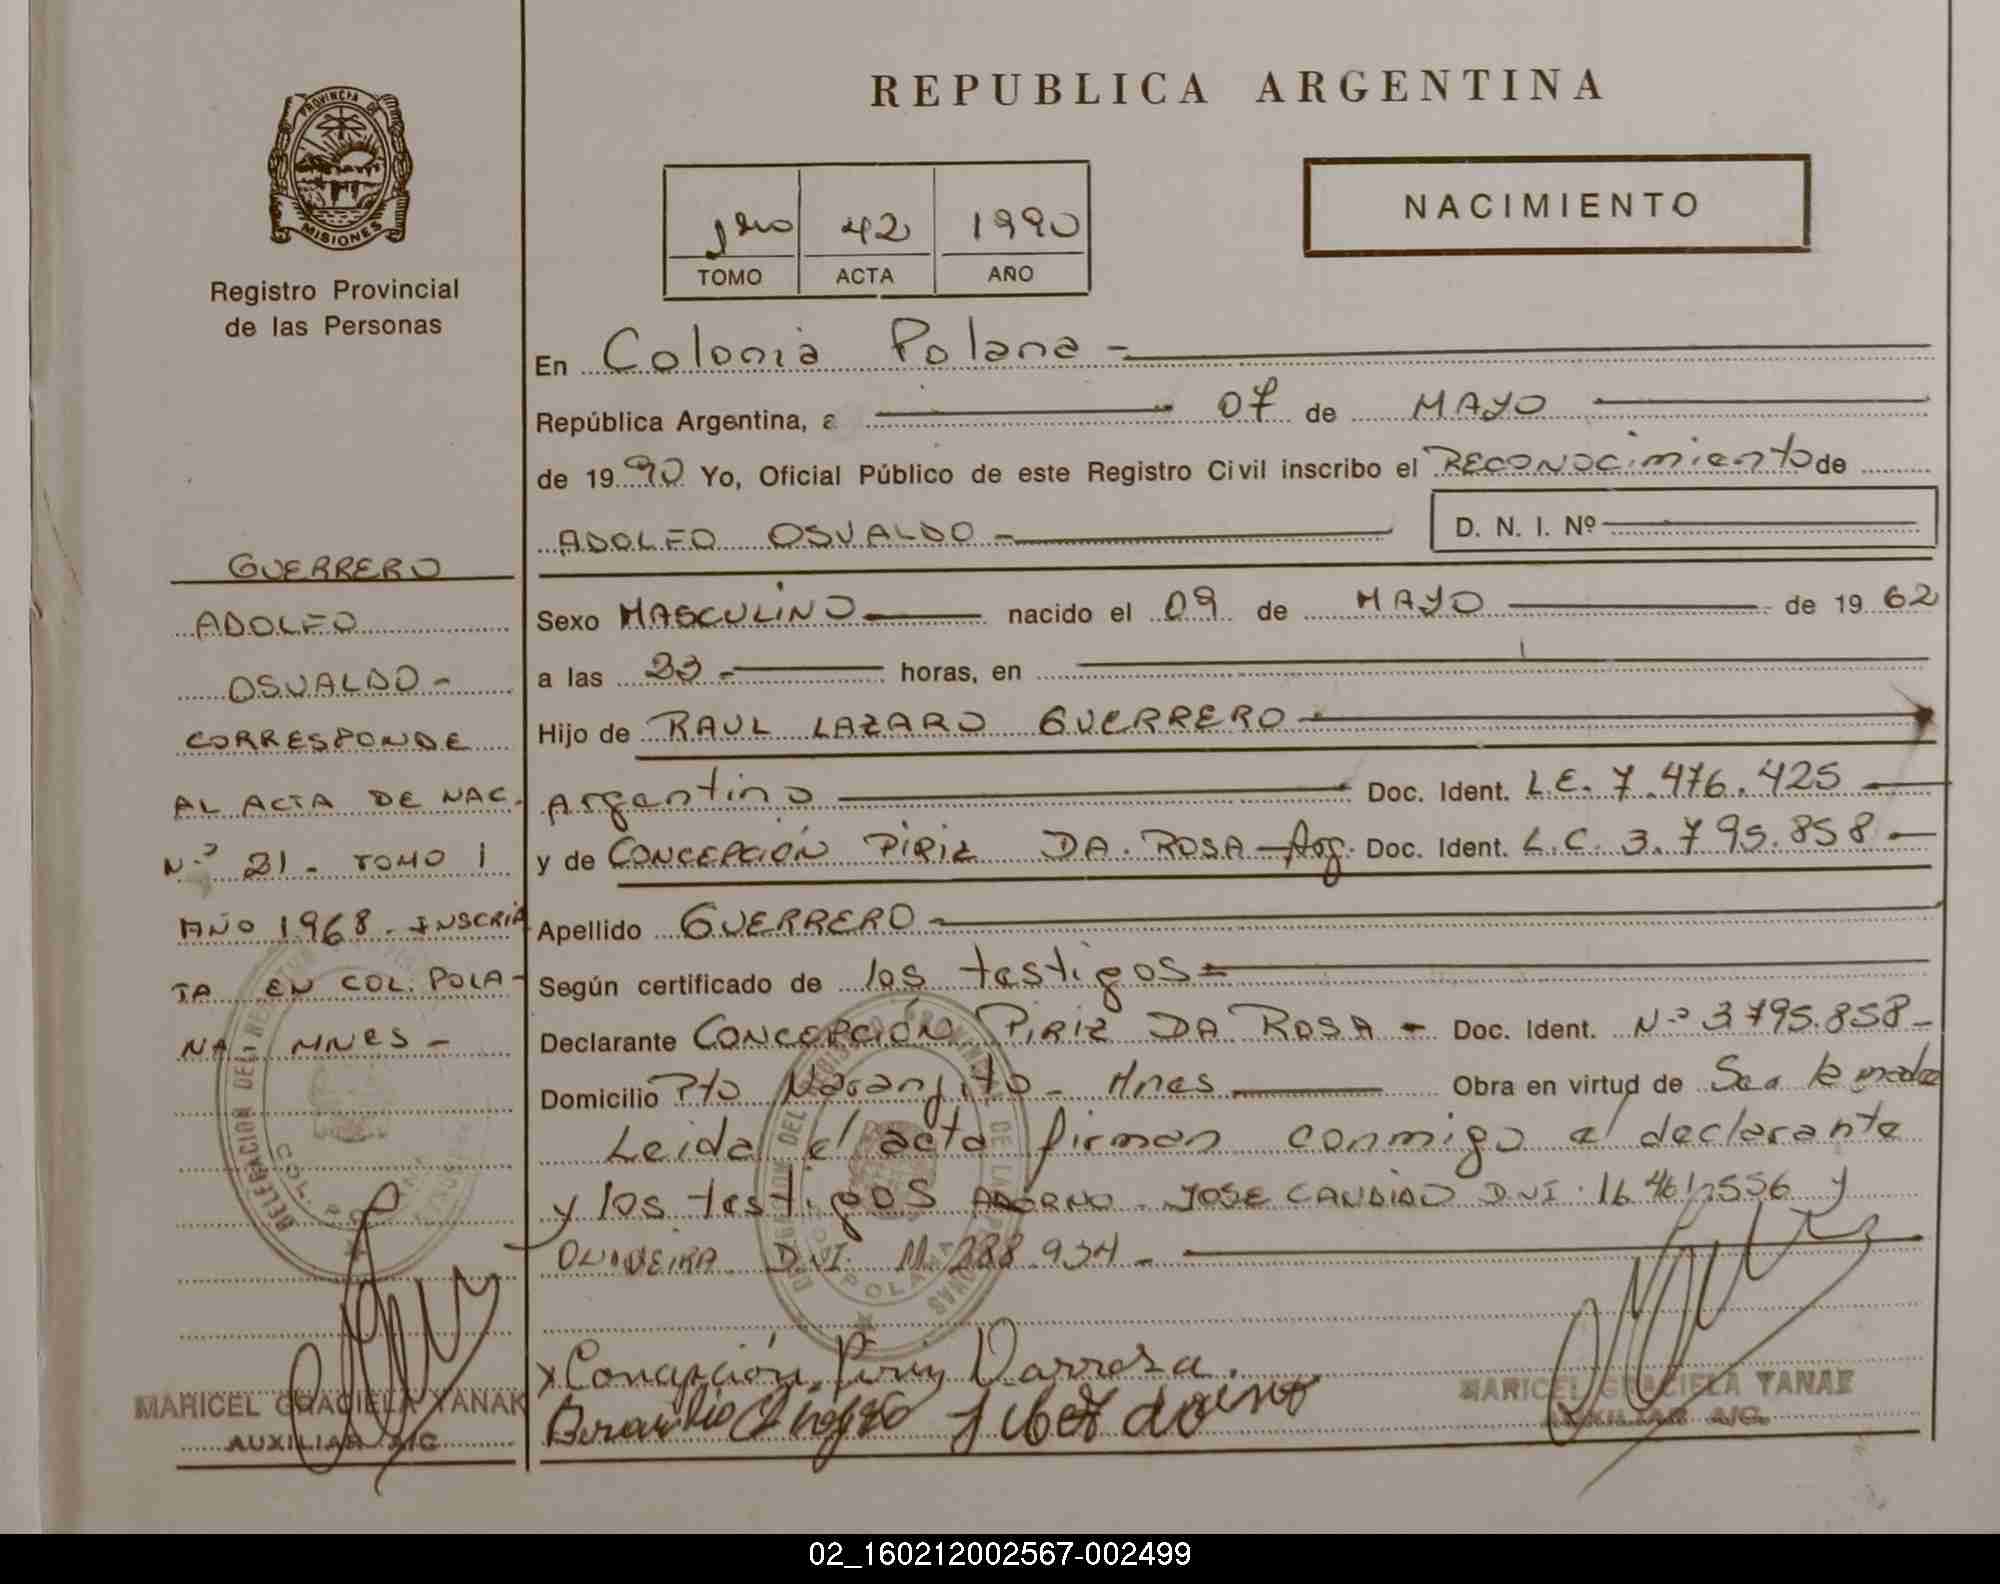 PROVINCIA DE
MISIONES
Registro Provincial
de las Personas
GUERRERO
ADOLFO
OSVALDO -
CORRESPONDE
AL ACTA DE NAC.
Nº 21 - TOMO 1
AÑO 1968 - INSCRIP
TA EN COL. POLA-
NA - MNES -
MARICEL GRACIELA YANAK
AUXILIAR A/C
REPUBLICA ARGENTINA
1ro 42 1990
TOMO ACTA AÑO
NACIMIENTO
En Colonia Polana -
República Argentina, a 07 de MAYO
de 1990 Yo, Oficial Público de este Registro Civil inscribo el RECONOCimiento de
ADOLFO OSVALDO - D. N. I. Nº
Sexo MASCULINO nacido el 09 de MAYO de 1962
a las 23 - horas, en
Hijo de RAUL LAZARO GUERRERO
Argentino Doc. Ident. L.E. 7.476.425
y de CONCEPCIÓN PIRIZ DA. ROSA - Arg. Doc. Ident. L.C. 3.795.858 -
Apellido GUERRERO -
Según certificado de los testigos
Declarante CONCEPCIÓN PIRIZ DA ROSA - Doc. Ident. Nº 3795.858 -
Domicilio Pto Naranjito - Mnes Obra en virtud de Ser la madre
Leida el acta firman conmigo el declarante
y los testigos ADORNO - JOSE CANDIDO DNI. 16.461.556 y
OLIVEIRA DNI. 11.288.934 -
x Concepción Piriz Darrosa.
MARICEL GRACIELA YANAK
AUXILIAR A/C.
02_160212002567-002499